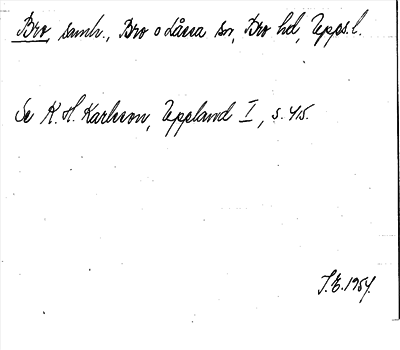 Bro, samh., Bro o Låssa snr, Bro hd, Upps. l.
Se K. H. Karlsson, Uppland I, s. 45.
J. E. 1954.